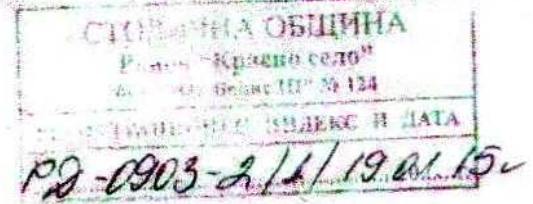 СТОЛИЧНА ОБЩИНА
Район "Красно село"
№ 124
РЕГИСТРАЦИОНЕН ИНДЕКС И ДАТА
РД-0903-2/1/19.01.15г